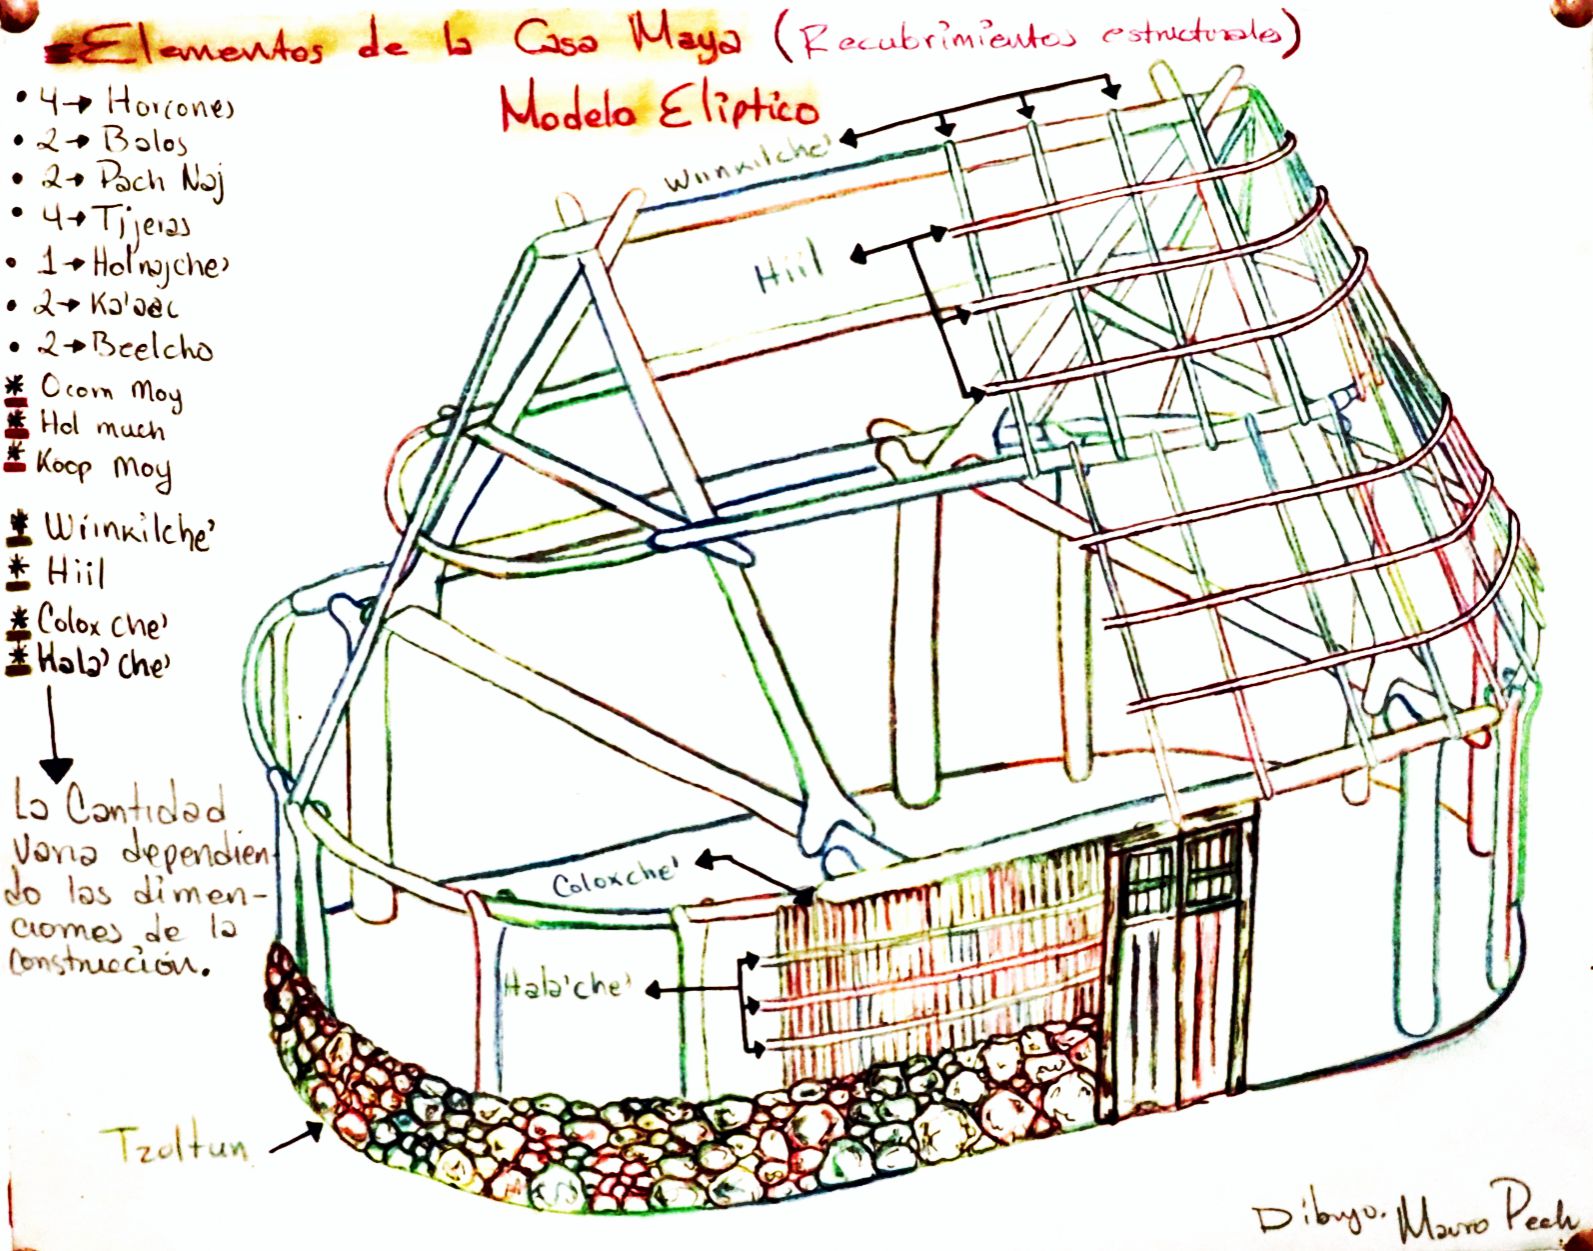 Elementos de la Casa Maya (Recubrimientos estructurales)
Modelo Eliptico
• 4→ Horcones
• 2→ Balos
• 2→ Pach Naj
• 4→ Tijeras
• 1→ Hol'najche'
• 2→ Ka'aac
• 2→ Beelcho
* Ocom Moy
* Hol much
* Koop Moy
* Wiinkilche'
* Hiil
* Colox che'
* Hala' che'
La Cantidad
varia dependien-
do las dimen-
ciones de la
construcción.
Wiinkilche'
Hiil
Coloxche'
Hala'che'
Tzoltun
Dibujo. Mauro Pech